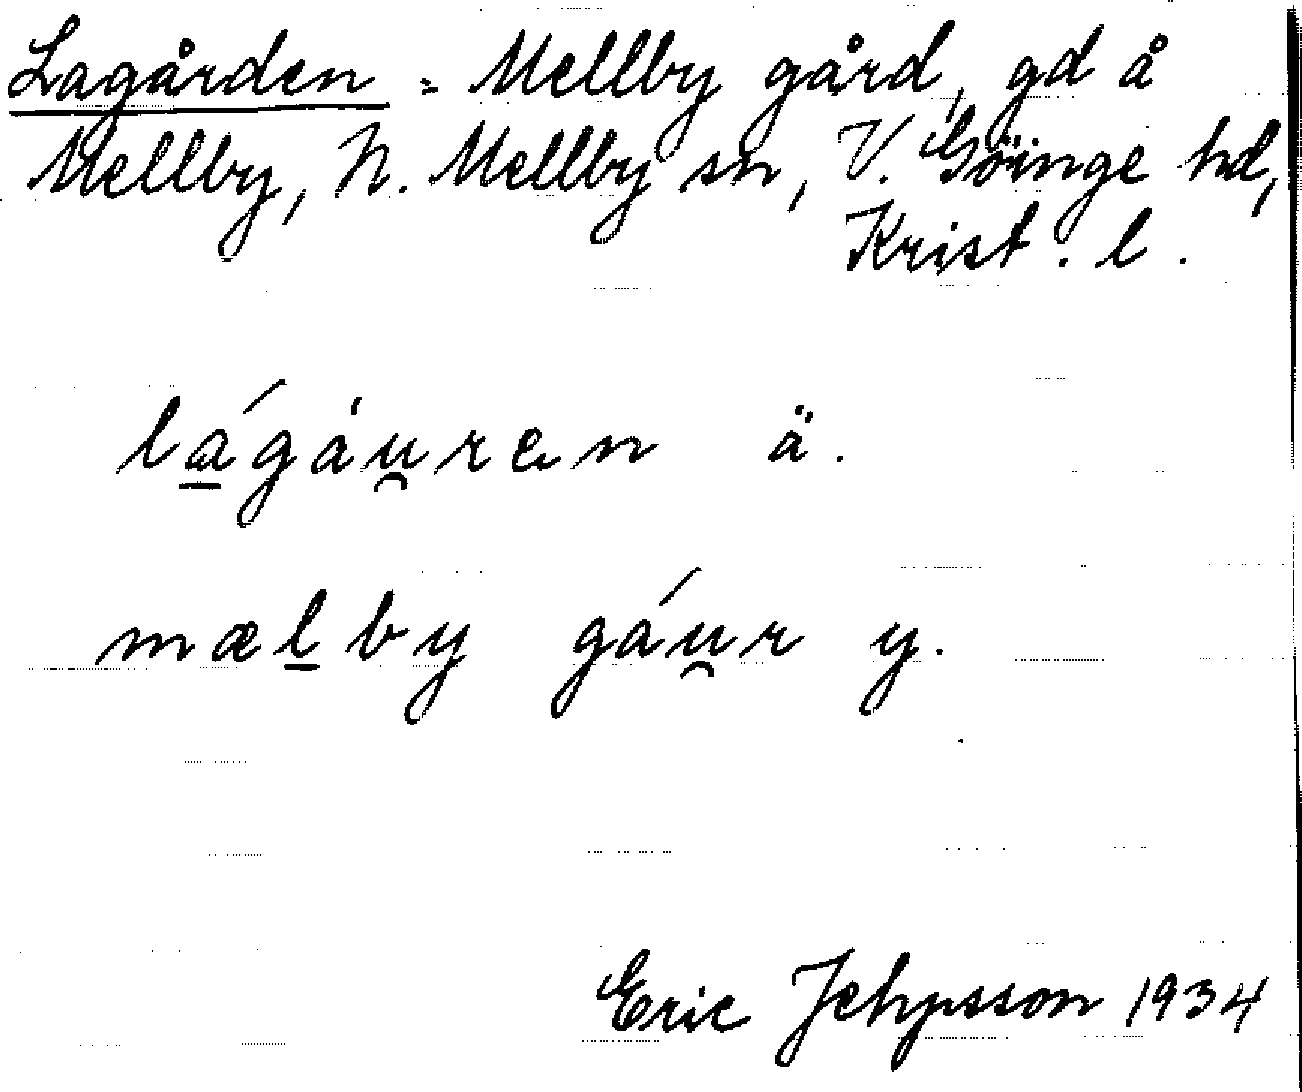 Lagården = Mellby gård, gd å
Mellby, N. Mellby sn, V. Göinge hd,
Krist. l.
lágáu̯ren ä.
mælby gáu̯r y.
Eric Jehpsson 1934